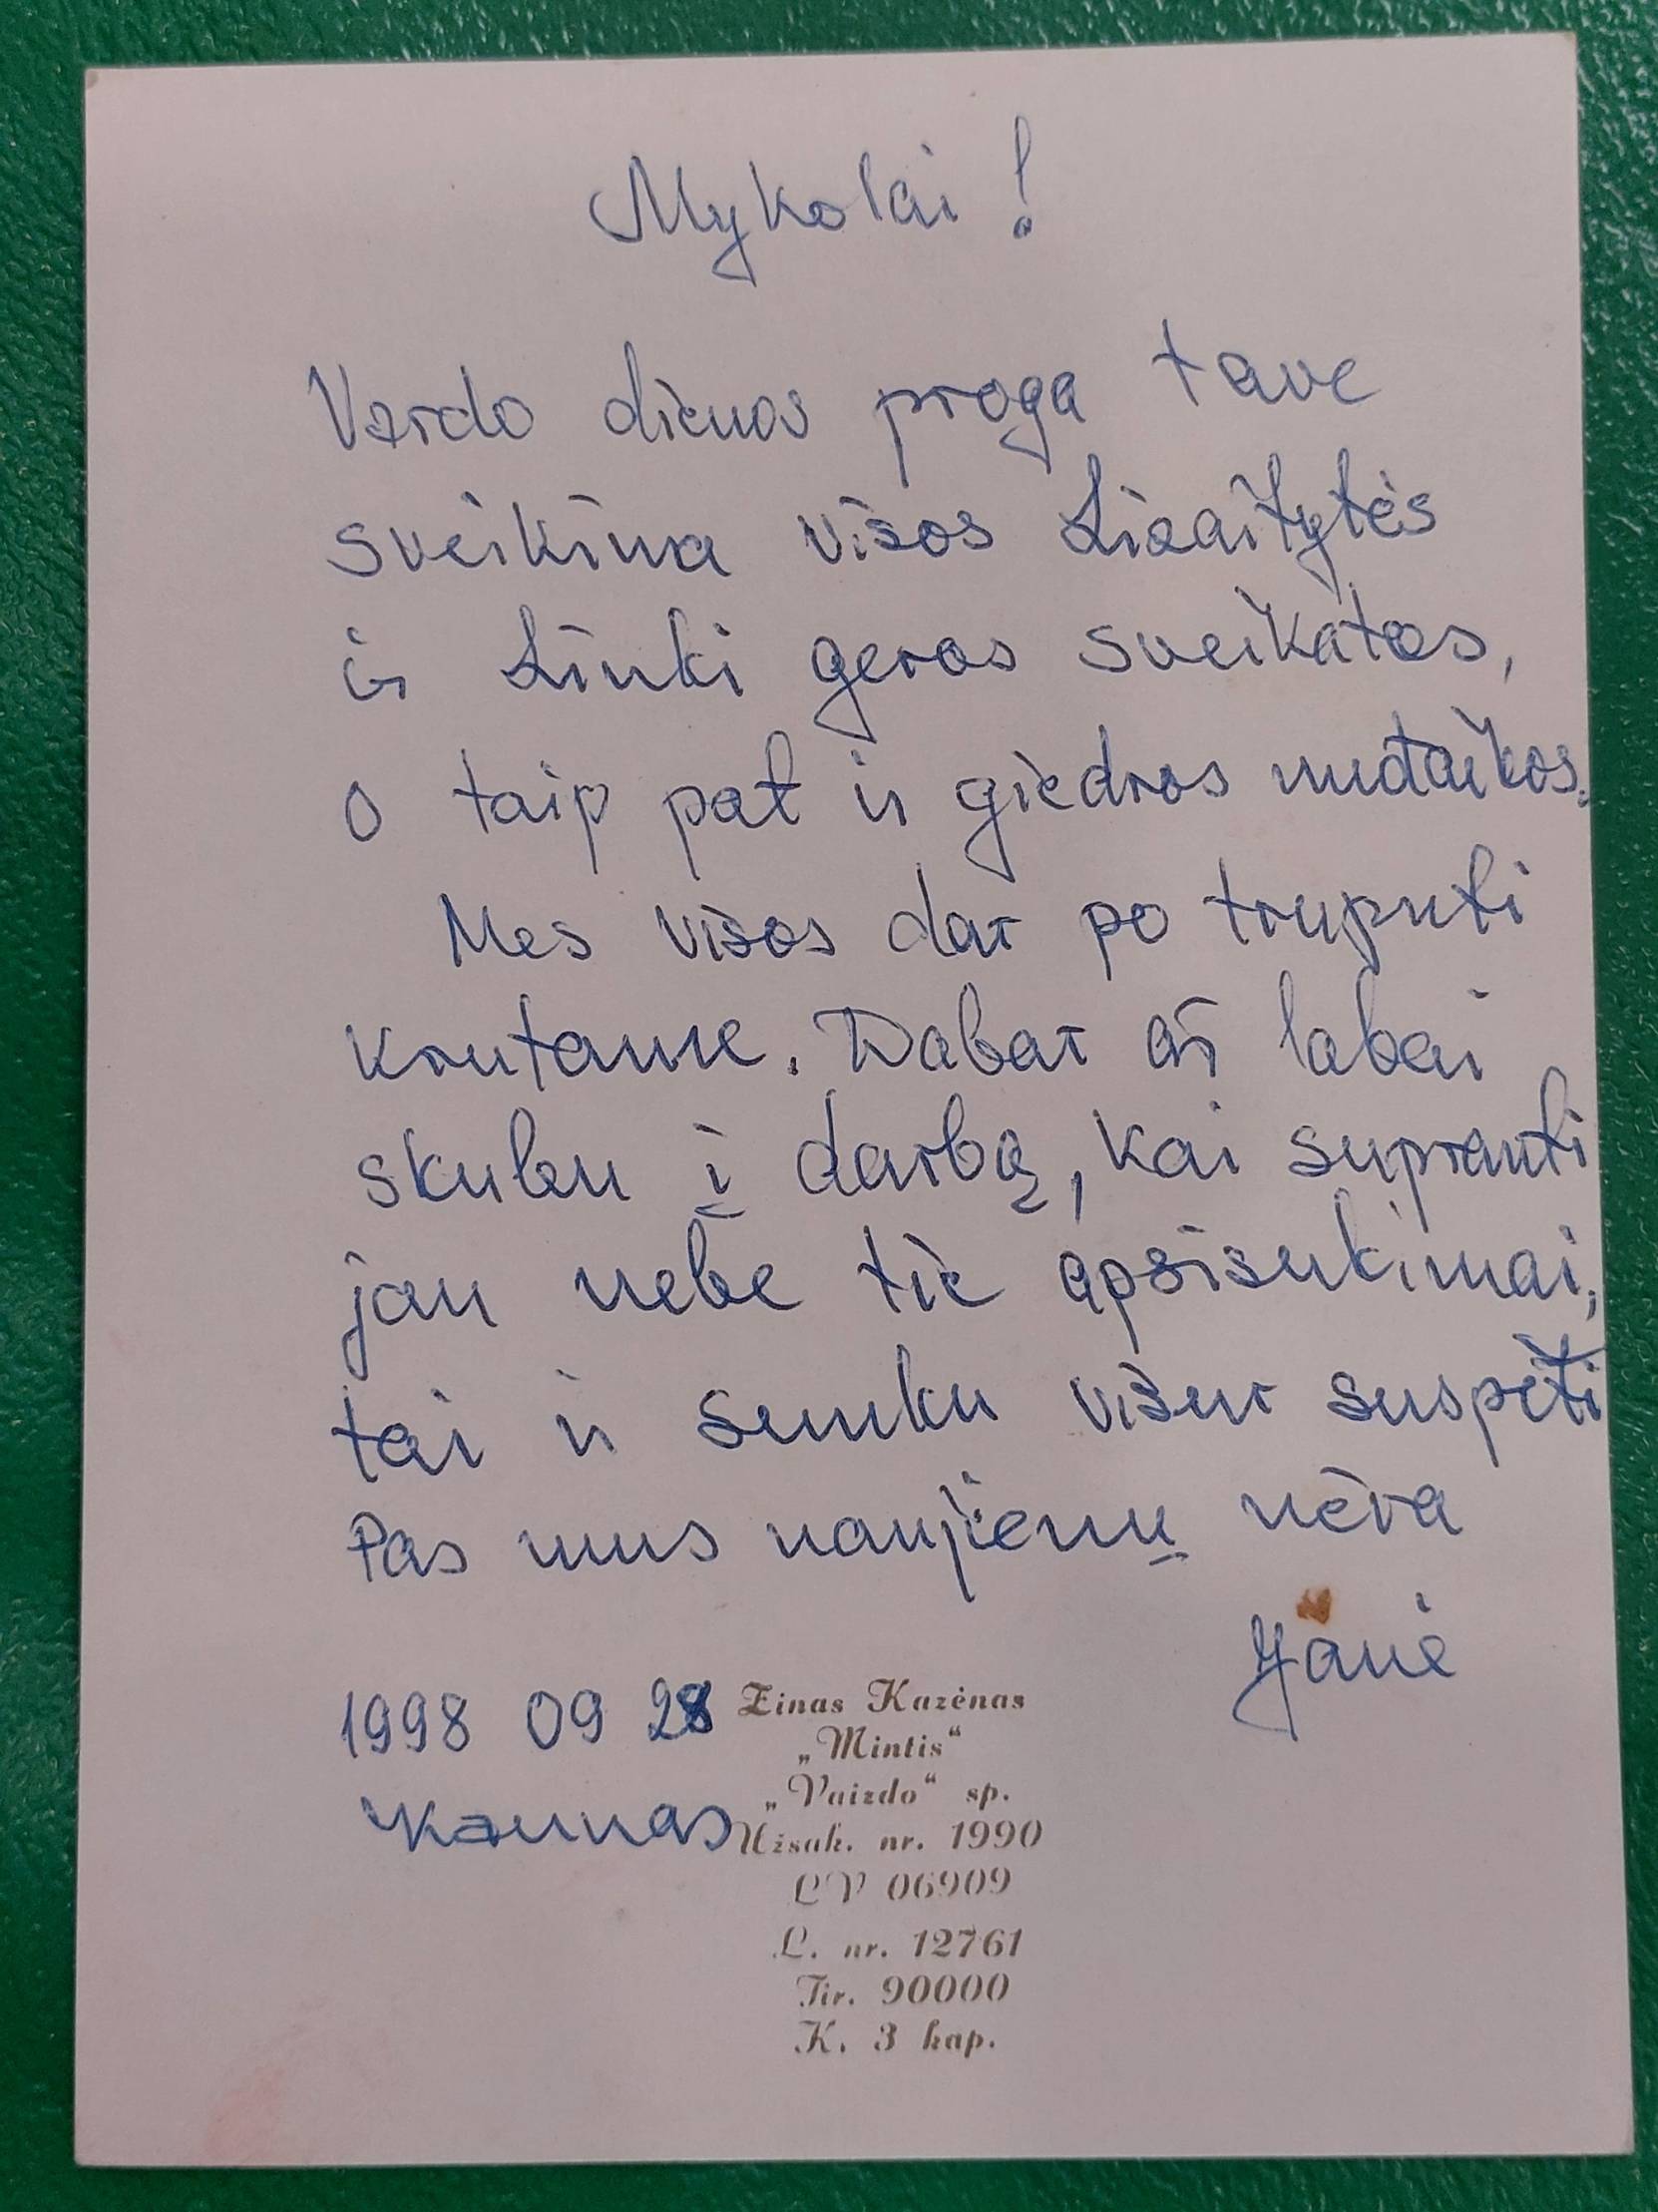 Mykolai!
Vardo dienos proga tave
sveikina visos
ir Linki geros sveikatos,
o taip pat ir giedros nuotaikos.
Mes visos dar po truputi
krutame. Dabar aš labai
skubu į darbą, kai supranti
jau nebe tie apsisukimai,
tai ir sunku visur suspėti
Pas mus naujienų nėra
Janė
1998 09 28
Kaunas
Zinas Kazėnas
„Mintis“
„Vaizdo“ sp.
Užsak. nr. 1990
LV 06909
L. nr. 12761
Tir. 90000
K. 3 kap.